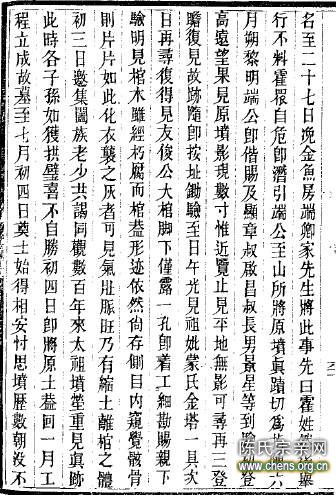 名至二十七日晚金魚房端卿家先生將此事先曰霍姓
行不料霍最自危即潛引端公至山所將原墳眞蹟切爲
月朔黎明端公卽偕賜及顯章叔啟昌叔長男景星等到
高遠望果見原墳影現數寸惟近覽止見平地無影可尋再三登
瞻復見故跡隨卽按址鋤驗至日午光見祖妣蒙氏金塔一具次
日再尋復得見友俊公大棺脚下僅露一孔卽着工細勘賜親下
驗明見棺木雖經朽腐而棺蓋形迹依然尙存側目內窺覺骸骨
則片片如此化衣襲之灰者可見氣脏脈旺乃有縮土離棺之體
初三日邀集闔族老少共謁同觀數百年來太祖墳塋重見眞跡
此時各子孫如獲拱璧喜不自勝初四日卽將原土葢回一月工
程立成故墓至七月初四日奠土始得相安忖思墳歷數朝沒不
陈氏宗亲网
www.chens.org.cn